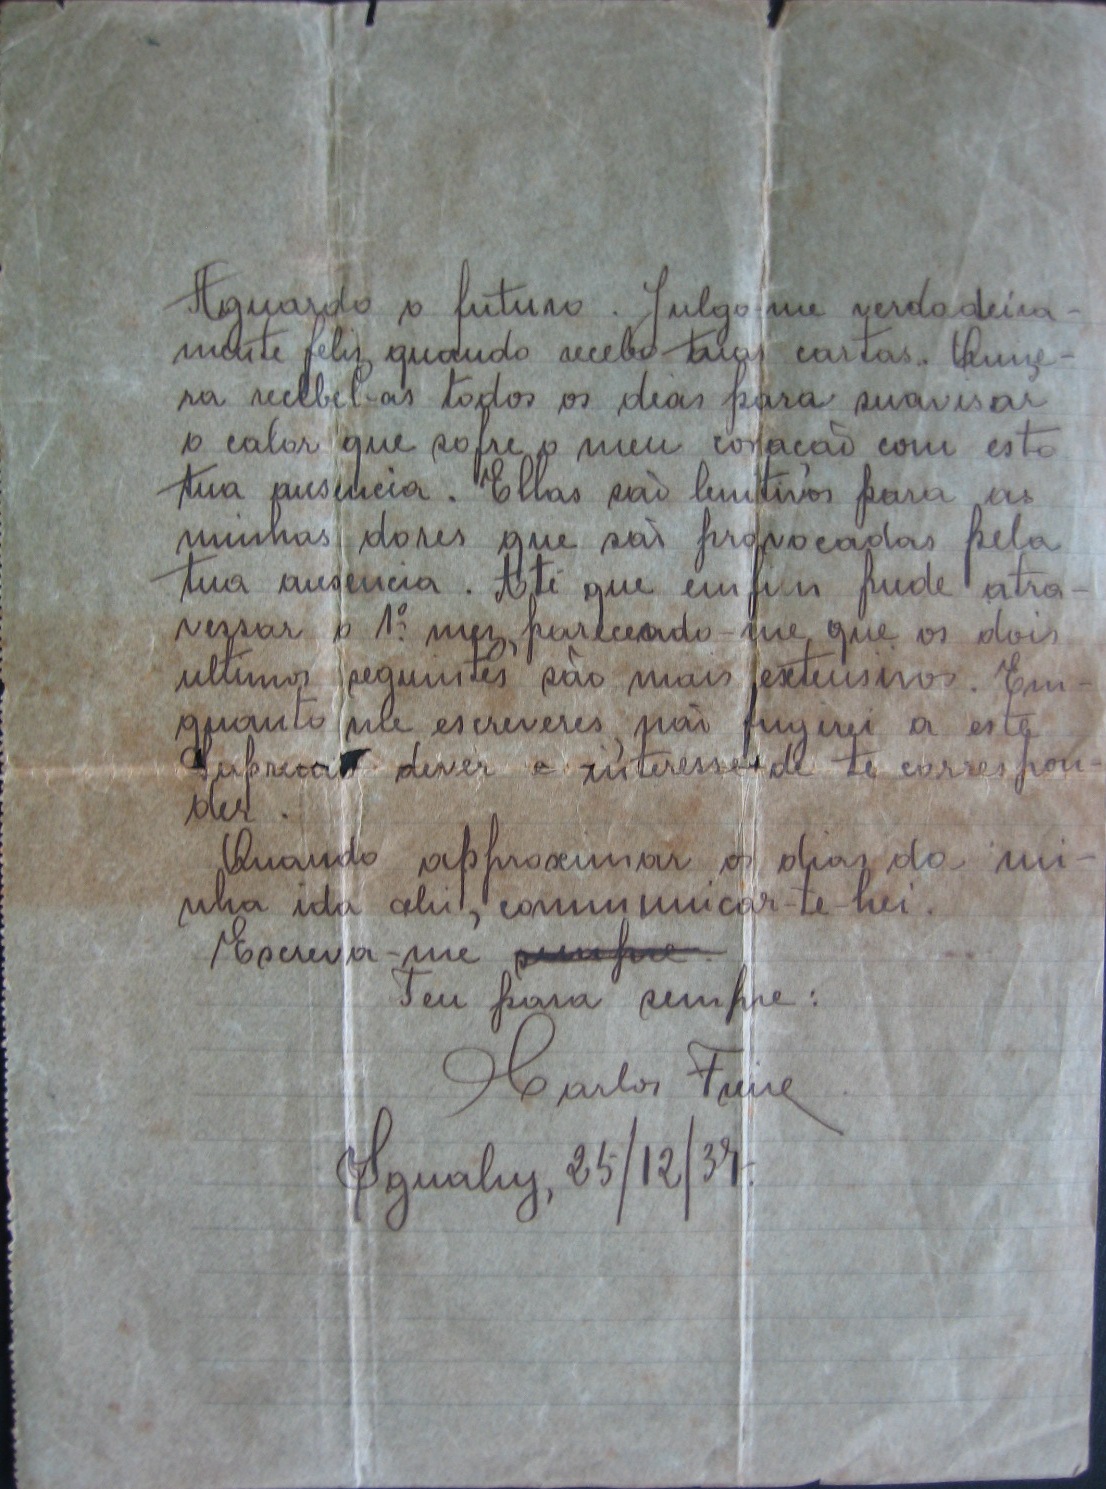 Aguardo o futuro. Julgo-me verdadeira-
mente feliz quando recebo tuas cartas. Quize-
ra recebel-as todos os dias para suavisar
o calor que sofre o meu coração com esta
tua ausencia. Ellas são lenitivos para as
minhas dores que são provocadas pela
tua ausencia. Até que emfim pude atra-
vessar o 1º mez, parecendo-me que os dois
ultimos seguintes são mais extensivos. Em-
quanto me escreveres não fugirei a este
dever e interesse de te correspon-
der.
Quando approximar os dias da mi-
nha ida ahi, communicar-te-hei.
Escreva-me sempre.
Teu para sempre:
Carlos Freire
25/12/37.